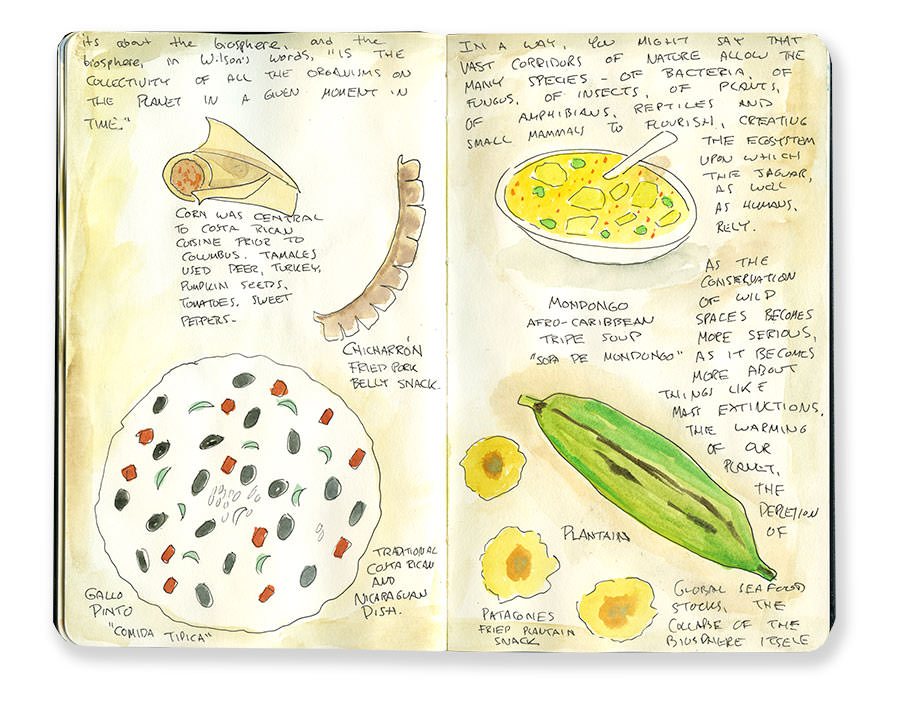 its about the biosphere, and the
biosphere, in Wilson's words, "IS THE
COLLECTIVITY OF ALL THE ORGANISMS ON
THE PLANET IN A GIVEN MOMENT IN
TIME."
CORN WAS CENTRAL
TO COSTA RICAN
CUISINE PRIOR TO
COLUMBUS. TAMALES
USED DEER, TURKEY,
PUMPKIN SEEDS,
TOMATOES, SWEET
PEPPERS.
CHICHARRÓN
FRIED PORK
BELLY SNACK.
TRADITIONAL
COSTA RICAN
AND
NICARAGUAN
DISH.
GALLO
PINTO
"COMIDA TIPICA"
IN A WAY, YOU MIGHT SAY THAT
VAST CORRIDORS OF NATURE ALLOW THE
MANY SPECIES - OF BACTERIA, OF
FUNGUS, OF INSECTS, OF PLANTS,
OF AMPHIBIANS, REPTILES AND
SMALL MAMMALS TO FLOURISH, CREATING
THE ECOSYSTEM
UPON WHICH
THE JAGUAR,
AS WELL
AS HUMANS,
RELY.
MONDONGO
AFRO-CARIBBEAN
TRIPE SOUP
"SOPA DE MONDONGO"
AS THE
CONSERVATION
OF WILD
SPACES BECOMES
MORE SERIOUS,
AS IT BECOMES
MORE ABOUT
THINGS LIKE
MASS EXTINCTIONS,
THE WARMING
OF OUR
PLANET,
THE
DEPLETION
OF
PLANTAIN
PATACONES
FRIED PLANTAIN
SNACK
GLOBAL SEAFOOD
STOCKS, THE
COLLAPSE OF THE
BIOSPHERE ITSELF